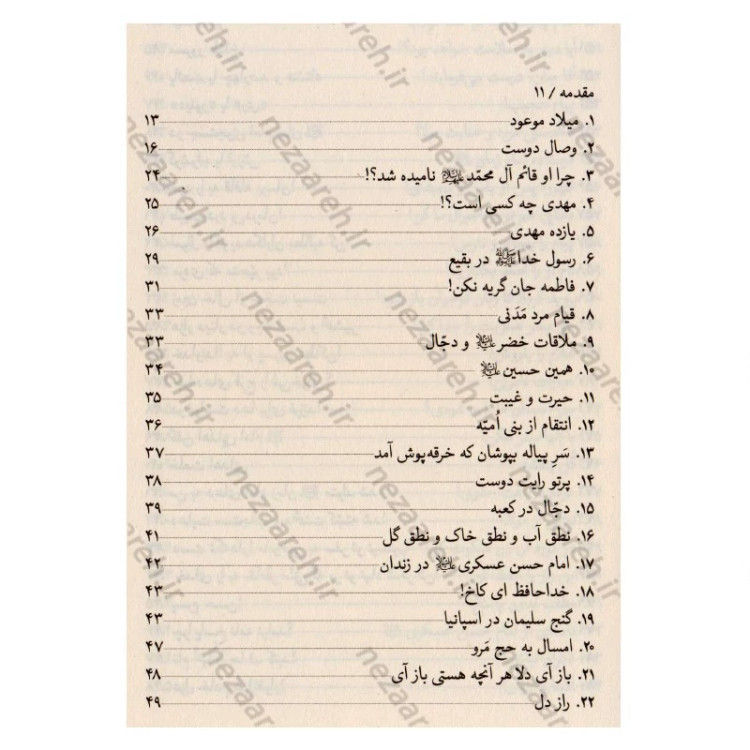 مقدمه / ۱۱
۱. میلاد موعود ۱۳
۲. وصال دوست ۱۶
۳. چرا او قائم آل محمّد علیه‌السلام نامیده شد؟! ۲۴
۴. مهدی چه کسی است؟! ۲۵
۵. یازده مهدی ۲۶
۶. رسول خدا ﷺ در بقیع ۲۹
۷. فاطمه جان گریه نکن! ۳۱
۸. قیام مرد مَدَنی ۳۳
۹. ملاقات خضر علیه‌السلام و دجّال ۳۳
۱۰. همین حسین علیه‌السلام ۳۴
۱۱. حیرت و غیبت ۳۵
۱۲. انتقام از بنی اُمیّه ۳۶
۱۳. سَرِ پیاله بپوشان که خرقه‌پوش آمد ۳۷
۱۴. پرتو رایت دوست ۳۸
۱۵. دجّال در کعبه ۳۹
۱۶. نطق آب و نطق خاک و نطق گل ۴۱
۱۷. امام حسن عسکری علیه‌السلام در زندان ۴۲
۱۸. خداحافظ ای کاخ! ۴۳
۱۹. گنج سلیمان در اسپانیا ۴۳
۲۰. امسال به حج مَرو ۴۷
۲۱. باز آی دلا هر آنچه هستی باز آی ۴۸
۲۲. راز دل ۴۹
nezaareh.ir